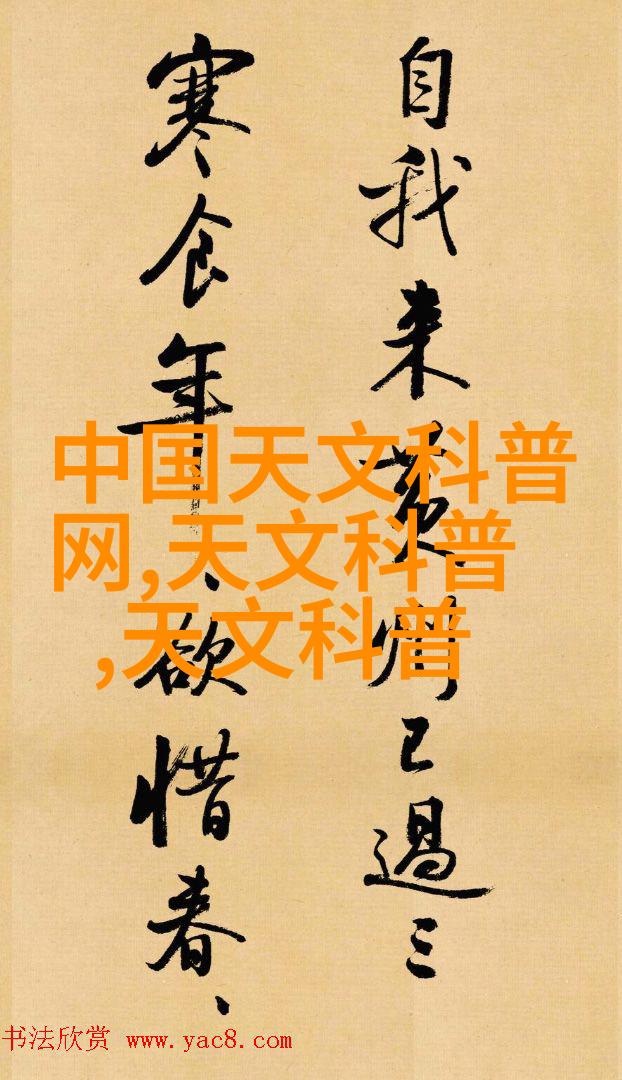 自我来黄州已过三
寒食年々欲惜春、
中国天文科普
网,天文科普
,天文科普
书法欣赏 www.yac8.com